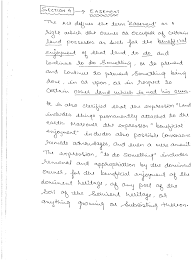 Section 4 → EASEMENT
The Act defines the term Easement as a
right which the owner or occupier of certain
land possesses as such for the beneficial
enjoyment of that land to do and
continue to do something, or to prevent
and continue to prevent something being
done, in or upon, or in respect to
certain other land which is not his own.
It is also clarified that the expression "Land
includes things permanently attached to the
earth. The expression "beneficial
enjoyment" includes also possible convenience
remote advantages, and even a mere amenity.
The expression, "to do something" includes
removal and appropriation by the dominant
owner, for the beneficial enjoyment of the
dominant heritage, of any part of the
soil of the servient heritage, or
anything growing or subsisting thereon.